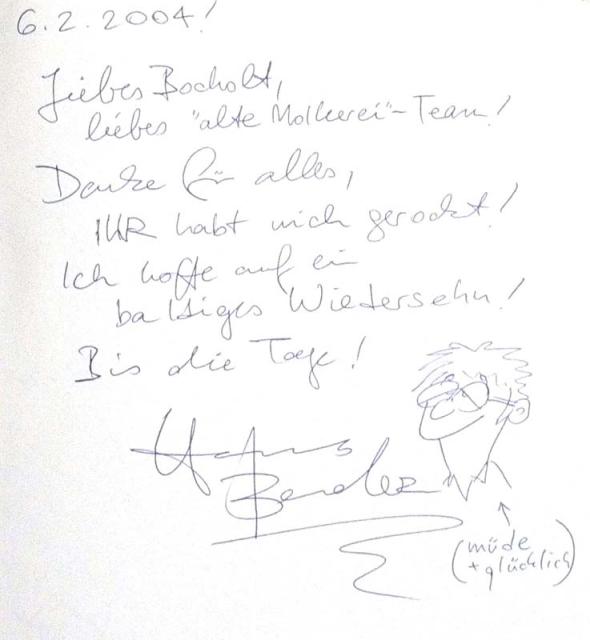 6.2.2004!
Liebes Bocholt,
liebes "alte Molkerei"-Team!
Danke für alles,
IHR habt mich gerockt!
Ich hoffe auf ein
baldiges Wiedersehn!
Bis die Tage!
Bender
(müde
+ glücklich)